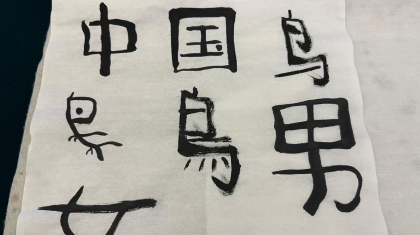 中国鸟
鳥男
女